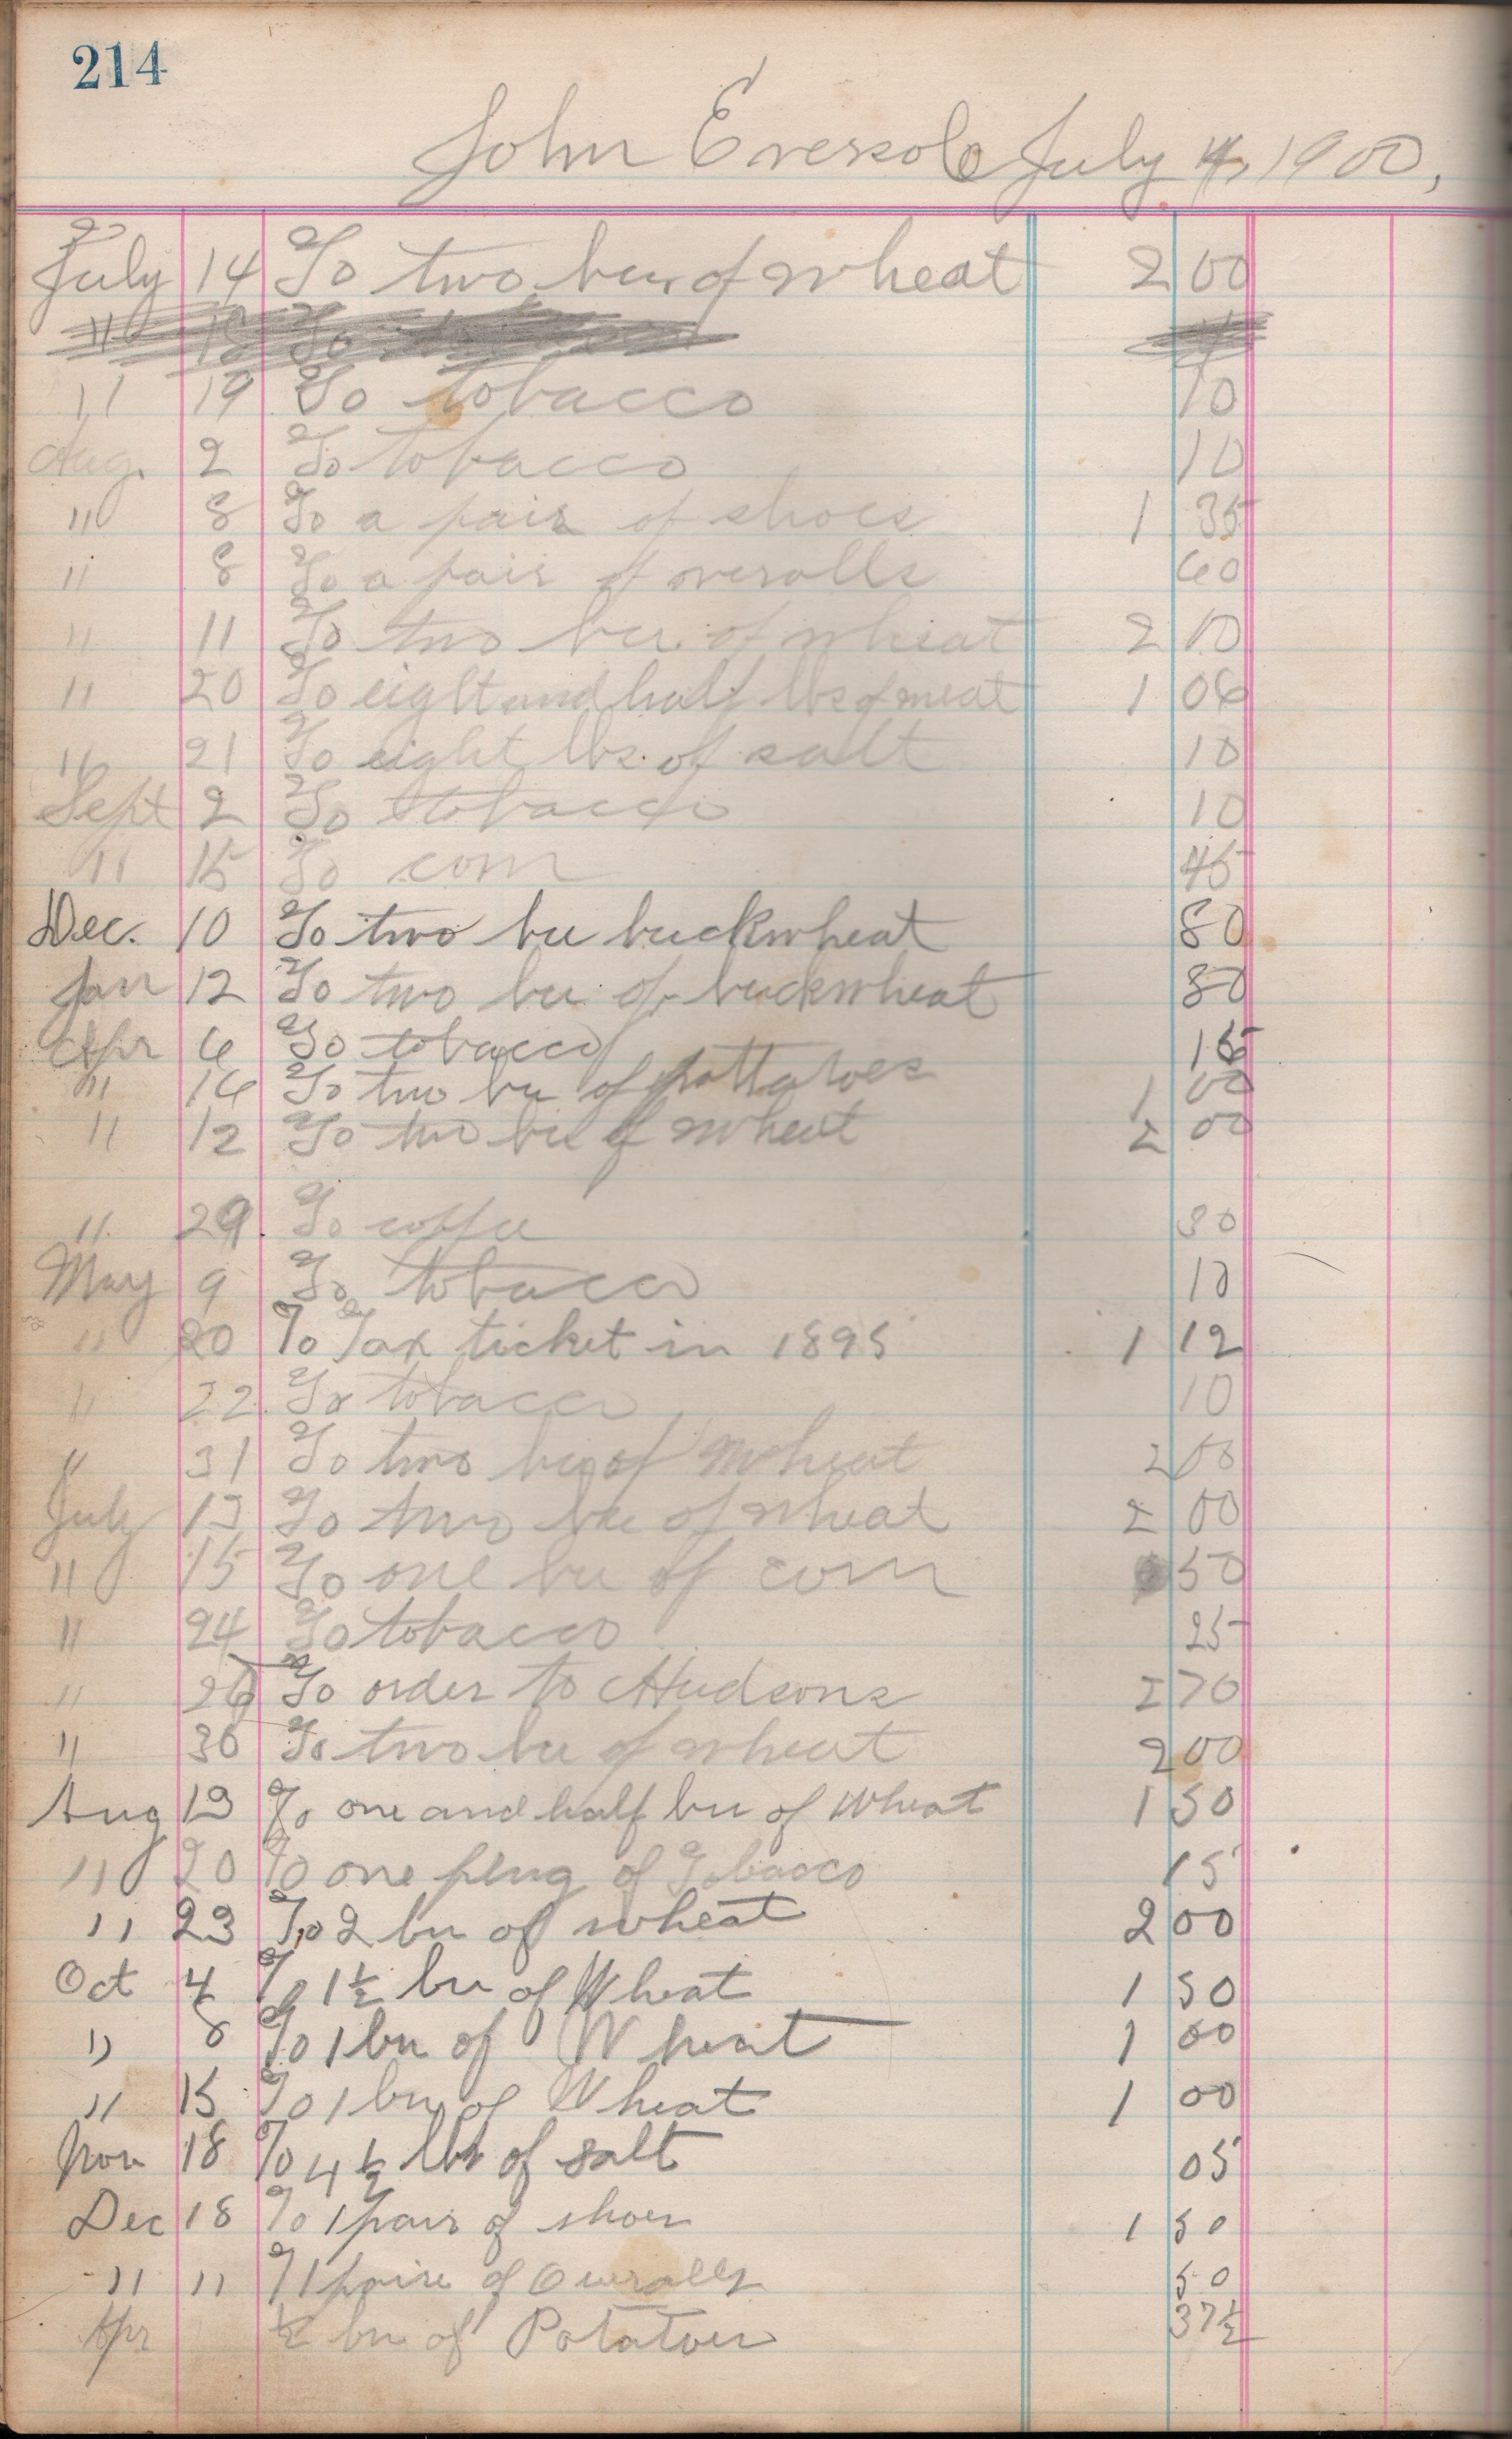 214
John Eversole July 4, 1900,
July 14 To two bu. of wheat 2 00
" 18 To
" 19 To tobacco 10
Aug. 2 To tobacco 10
" 8 To a pair of shoes 1 35
" 8 To a pair of overalls 60
" 11 To two bu. of wheat 2 10
" 20 To eight and half lbs of meat 1 06
" 21 To eight lbs. of salt 10
Sept 2 To tobacco 10
" 15 To corn 45
Dec. 10 To two bu buckwheat 80
Jan 12 To two bu of buckwheat 80
Apr 6 To tobacco 15
" 16 To two bu of pottatoes 1 00
" 12 To two bu of wheat 2 00
" 29. To coffee 30
May 9 To tobacco 10
" 20 To Tax ticket in 1895 1 12
" 22. To tobacco 10
" 31 To two bu of wheat 2 00
July 13 To two bu of wheat 2 00
" 15 To one bu of corn 50
" 24 To tobacco 25
" 26 To order to Hudsons 2 70
" 30 To two bu of wheat 2 00
Aug 13 To one and half bu of Wheat 1 50
" 20 To one plug of Tobacco 15
" 23 To 2 bu of wheat 2 00
Oct 4 To 1 1/2 bu of Wheat 1 50
" 8 To 1 bu of Wheat 1 00
" 15 To 1 bu of Wheat 1 00
Nov 18 To 4 1/2 lbs of salt 05
Dec 18 To 1 pair of shoes 1 50
" " T 1 paire of Overalls 50
Apr 1/2 bu of Potatoes 37 1/2